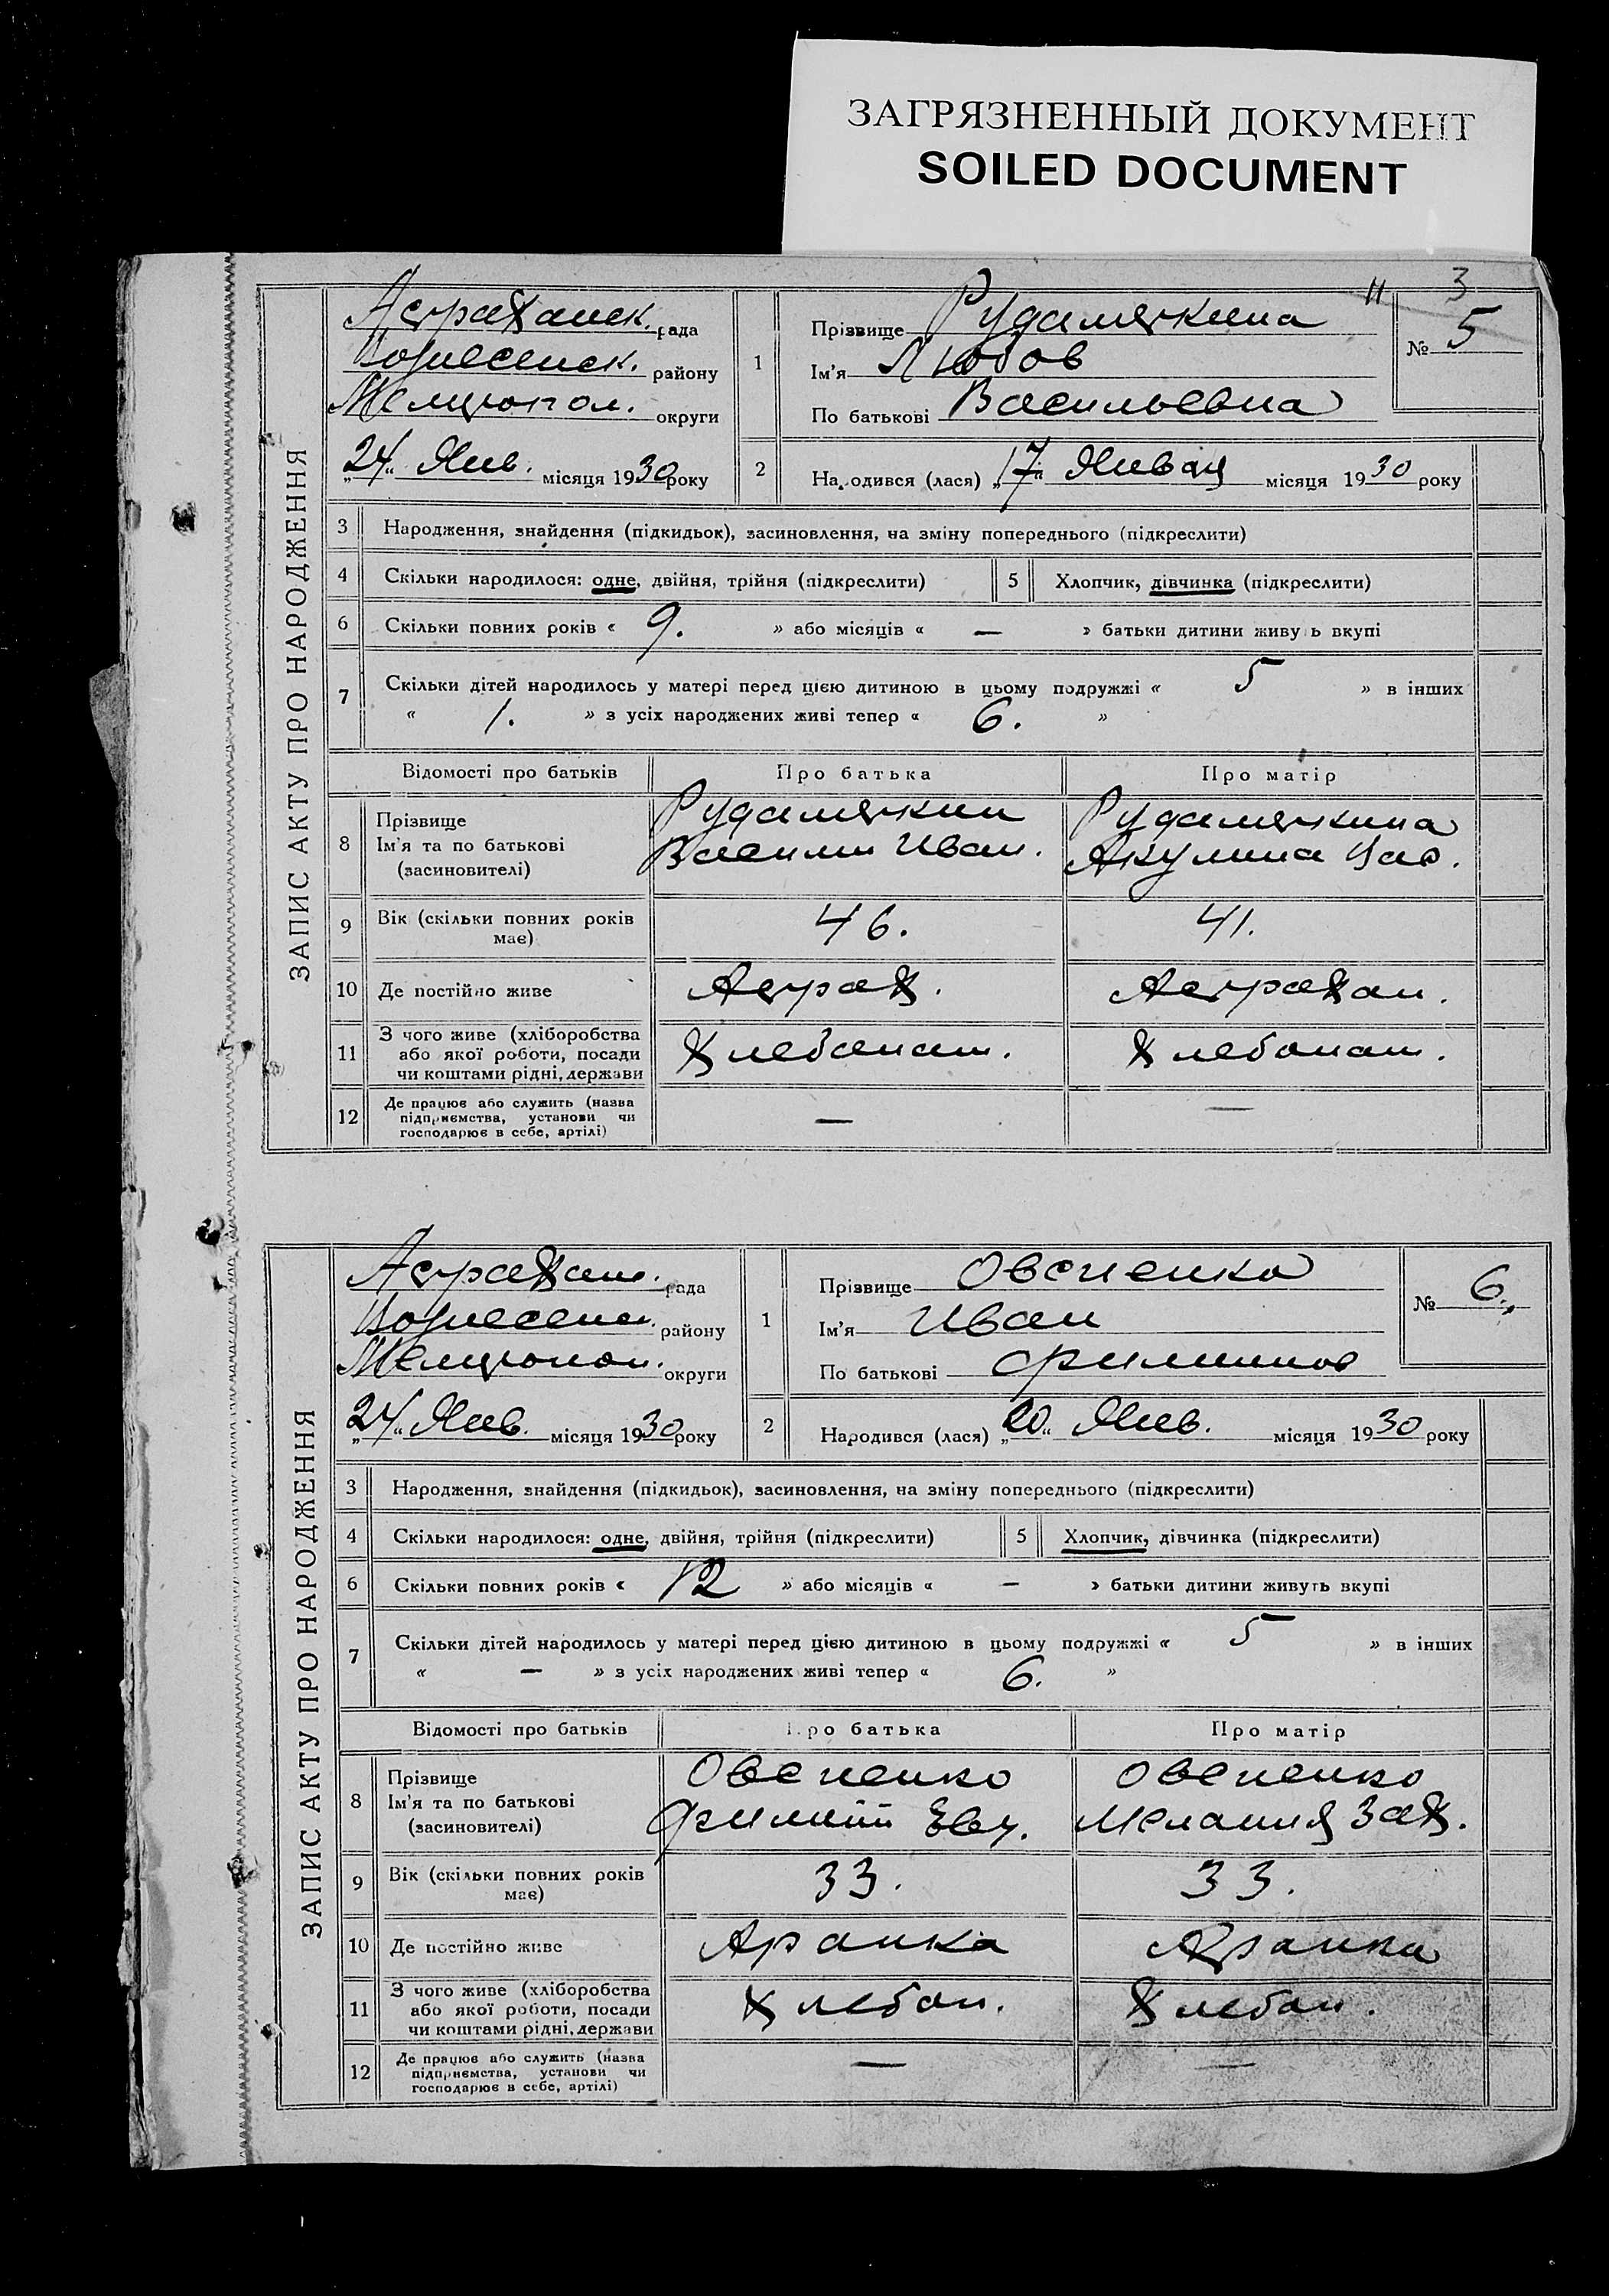 ЗАГРЯЗНЕННЫЙ ДОКУМЕНТ
SOILED DOCUMENT
3
ЗАПИС АКТУ ПРО НАРОДЖЕННЯ
Астраханск. рада
Вознесенск. району
Мелитопол. округи
„24“ Янв. місяця 1930 року
1
Прізвище Рудаметкина
Ім’я Любов
По батькові Васильевна
№ 5
2
Народився (лася) „17“ Января місяця 1930 року
3 Народження, знайдення (підкидьок), засиновлення, на зміну попереднього (підкреслити)
4 Скільки народилося: одне, двійня, трійня (підкреслити) 5 Хлопчик, дівчинка (підкреслити)
6 Скільки повних років « 9. » або місяців « — » батьки дитини живу ь вкупі
7 Скільки дітей народилось у матері перед цією дитиною в цьому подружжі « 5 » в інших
« 1. » з усіх народжених живі тепер « 6. »
Відомості про батьків Про батька Про матір
8 Прізвище
Ім’я та по батькові
(засиновителі)
Рудаметкин
Василий Иван.
Рудаметкина
Акулина
9 Вік (скільки повних років
має)
46. 41.
10 Де постійно живе Астрах. Астрахан.
11 З чого живе (хліборобства
або якої роботи, посади
чи коштами рідні, держави
Хлебопаш. Хлебопаш.
12 Де працює або служить (назва
підприємства, установи чи
господарює в себе, артілі)
— —
ЗАПИС АКТУ ПРО НАРОДЖЕННЯ
Астрахан. рада
Вознесен. району
Мелитопол. округи
„24“ Янв. місяця 1930 року
1
Прізвище Овсиенко
Ім’я Иван
По батькові Филипов
№ 6.
2
Народився (лася) „20“ Янв. місяця 1930 року
3 Народження, знайдення (підкидьок), засиновлення, на зміну попереднього (підкреслити)
4 Скільки народилося: одне, двійня, трійня (підкреслити) 5 Хлопчик, дівчинка (підкреслити)
6 Скільки повних років « 12 » або місяців « — » батьки дитини живуть вкупі
7 Скільки дітей народилось у матері перед цією дитиною в цьому подружжі « 5 » в інших
« — » з усіх народжених живі тепер « 6. »
Відомості про батьків Про батька Про матір
8 Прізвище
Ім’я та по батькові
(засиновителі)
Овсиенко
Филип Евт.
Овсиенко
Мелания Зах.
9 Вік (скільки повних років
має)
33. 33.
10 Де постійно живе
11 З чого живе (хліборобства
або якої роботи, посади
чи коштами рідні, держави
Хлебоп. Хлебоп.
12 Де працює або служить (назва
підприємства, установи чи
господарює в себе, артілі)
— —